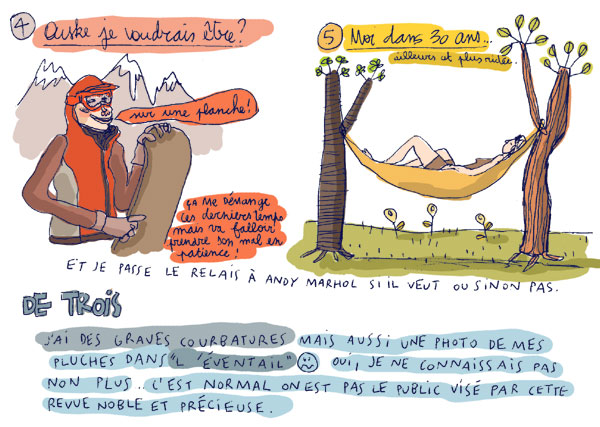 4 Ouske je voudrais être?
sur une planche!
ça me démange
ces derniers temps
mais va falloir
prendre son mal en
patience!
5 Moi dans 30 ans...
ailleurs et plus ridée.
ET JE PASSE LE RELAIS À ANDY MARHOL SI IL VEUT OU SINON PAS.
DE TROIS
J'AI DES GRAVES COURBATURES MAIS AUSSI UNE PHOTO DE MES
PLUCHES DANS "L'ÉVENTAIL" OUI, JE NE CONNAISSAIS PAS
NON PLUS.. C'EST NORMAL ON EST PAS LE PUBLIC VISÉ PAR CETTE
REVUE NOBLE ET PRÉCIEUSE.